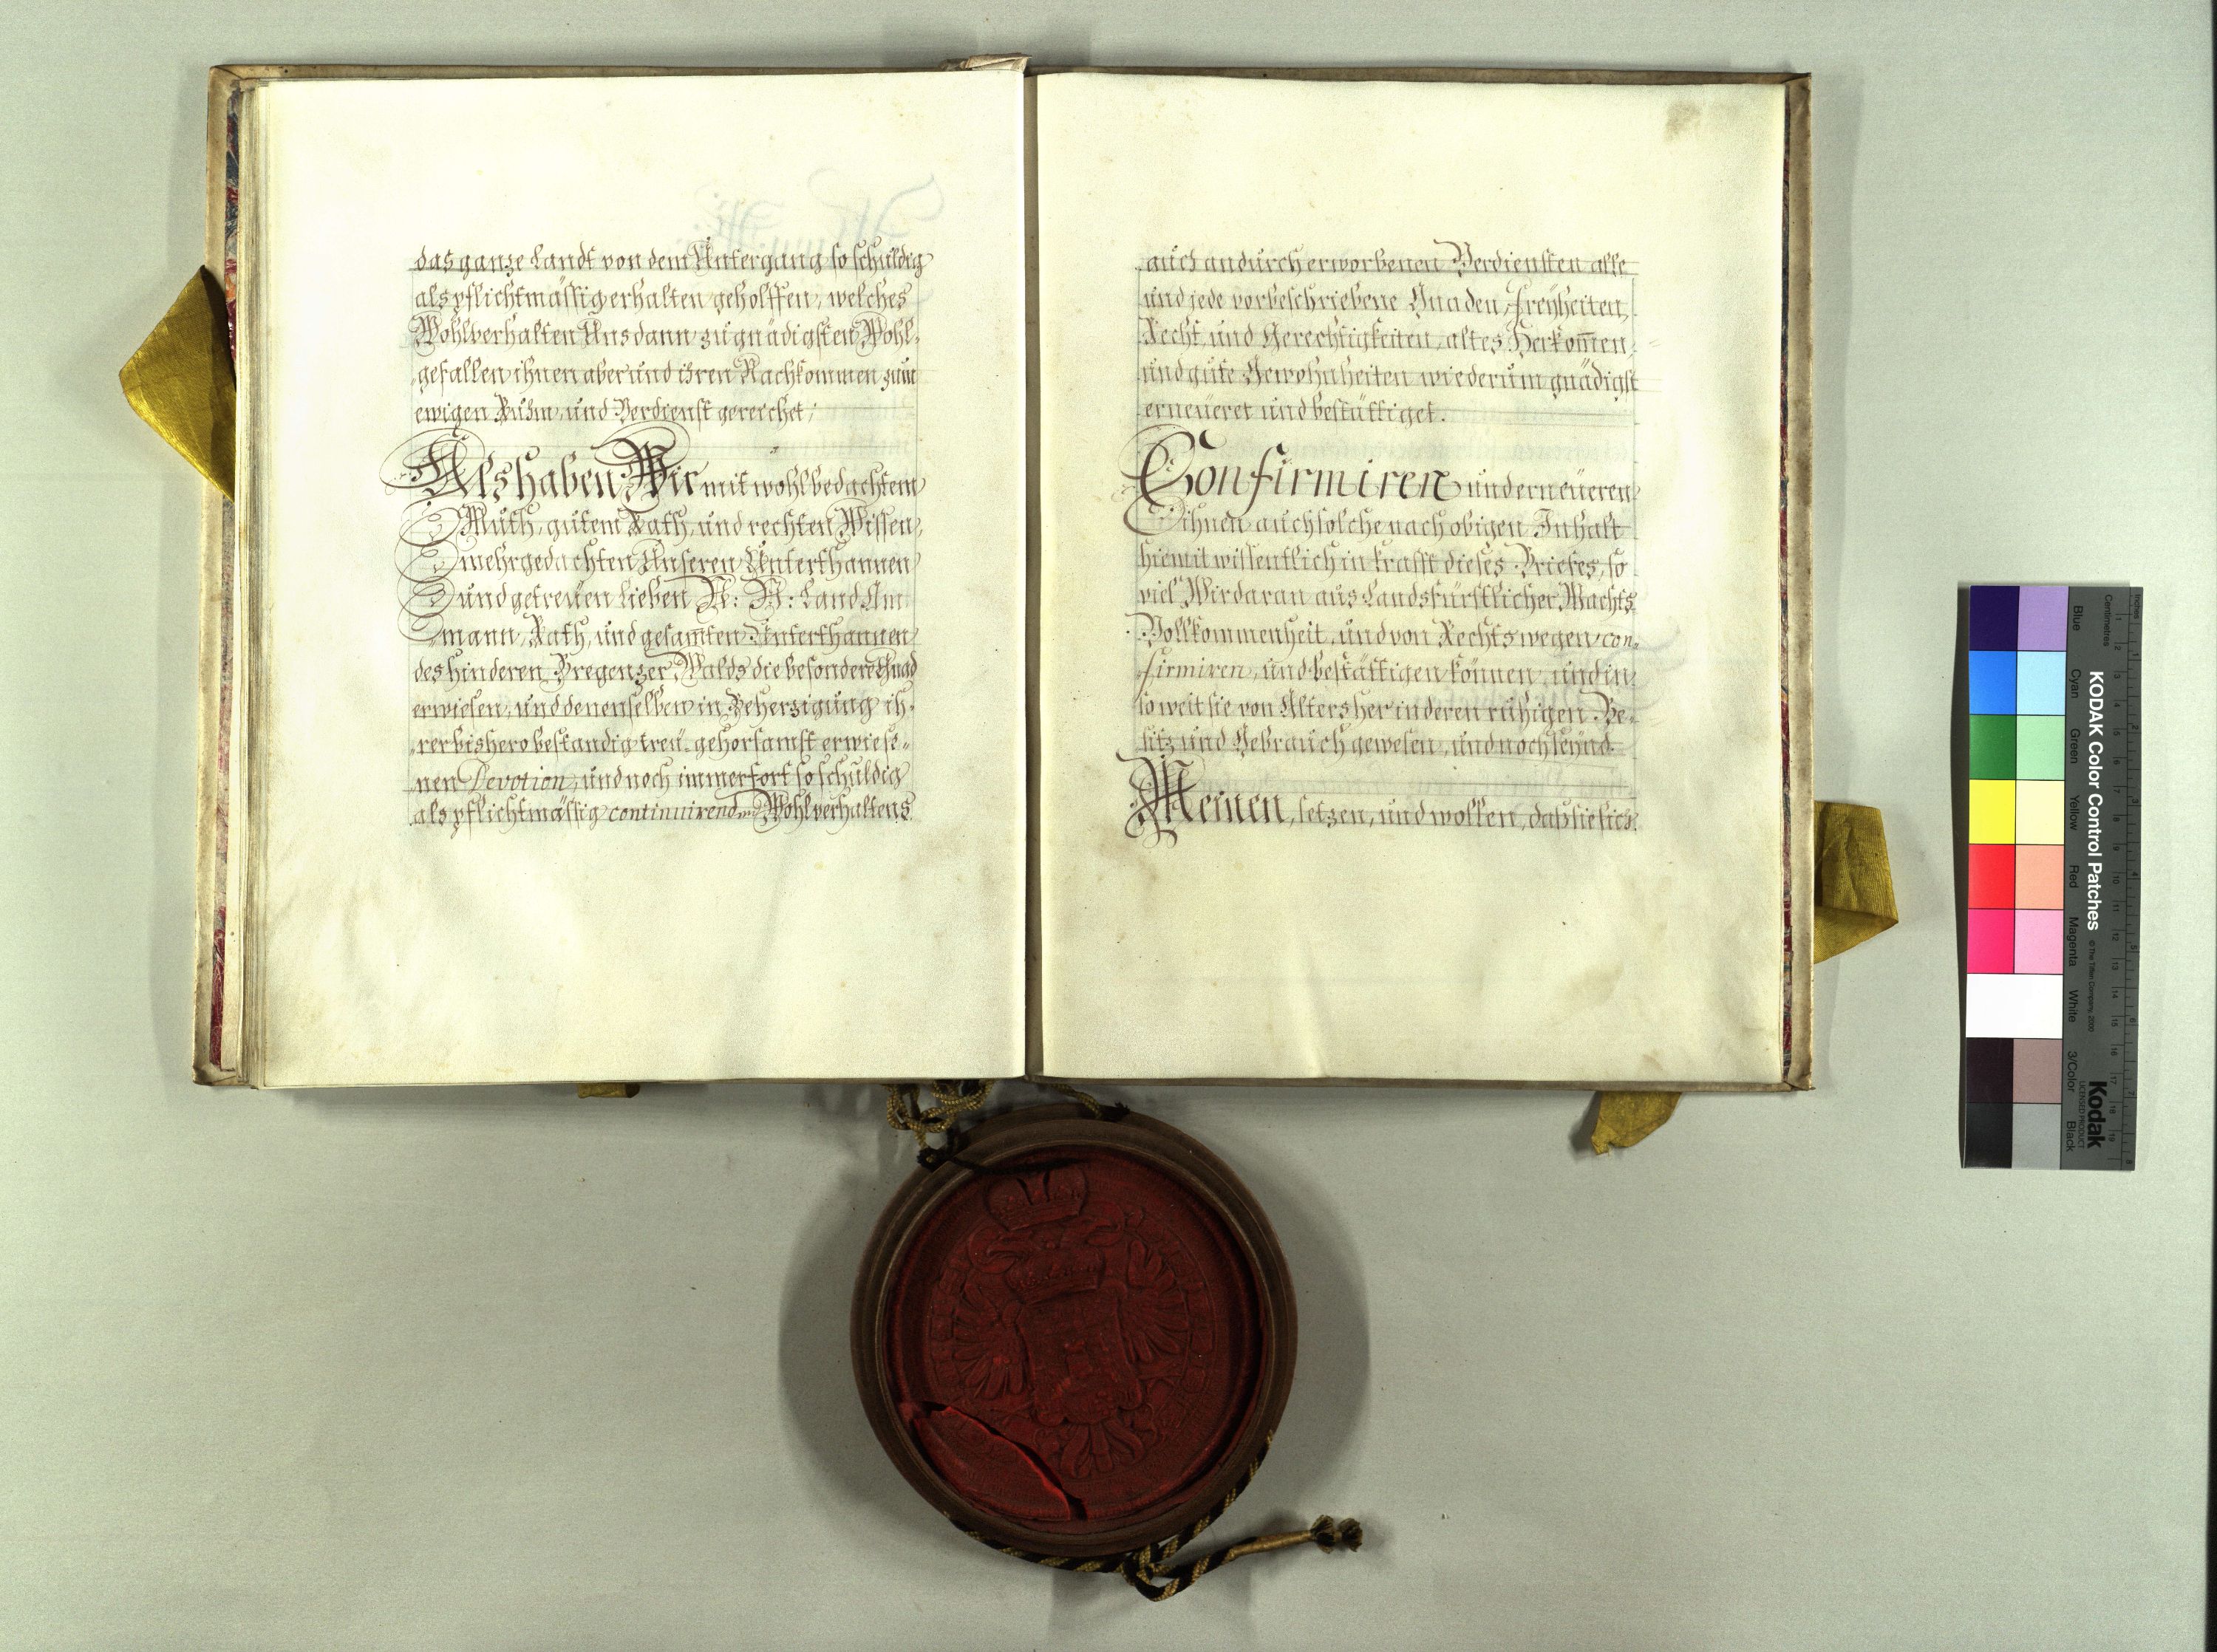 das ganze Landt von dem Untergang so schuldig
als pflichtmässig erhalten geholffen, welches
Wohlverhalten Uns dann zu gnädigsten Wohl-
gefallen ihnen aber und ihren Nachkommen zum
ewigen Ruhm, und Verdienst gereichet;
Als haben Wir mit wohlbedachtem
Muth, gutem Rath, und rechten Wissen,
mehrgedachten Unseren Unterthannen
und getreüen lieben N: N: Land Am
mann, Rath, und gesamten Unterthannen
des hinderen Bregenzer Walds die besondere Gnad
erwiesen, und denenselben in Beherzigung ih-
rer bishero beständig treü. gehorsamst erwiese-
nen Devotion, und noch immerfort so schuldig
als pflichtmässig continuirenden Wohlverhaltens
auch andurch erworbenen Verdiensten alle
und jede vorbeschriebene Gnaden, Freyheiten,
Recht, und Gerechtigkeiten, altes Herkom̅en,
und gute Gewohnheiten wiederum gnädigst
erneüeret und bestättiget.
Confirmiren und erneüeren
ihnen auch solche nach obigen Inhalt
hiemit wissentlich in krafft dieses Briefes, so
viel Wir daran aus Landsfürstlicher Machts
Vollkommenheit, und von Rechts wegen con-
firmiren, und bestättigen können, und in
so weit sie von Alters her in deren ruhigen Be-
sitz und Gebrauch gewesen, und noch seynd.
Meinen, setzen, und wollen, daß sie sich
KODAK Color Control Patches
© The Tiffen Company, 2000
Kodak
LICENSED PRODUCT
Inches
Centimetres
Blue
Cyan
Green
Yellow
Red
Magenta
White
3/Color
Black